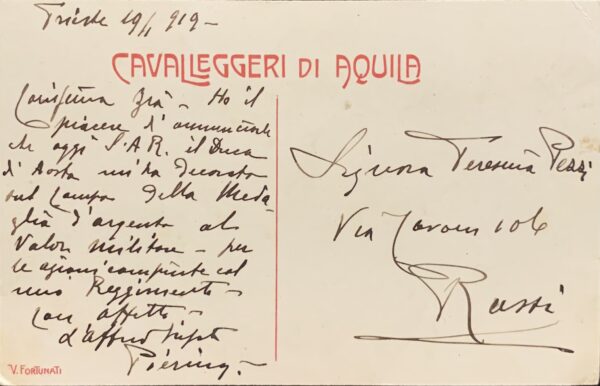 Trieste 19/1 919 -
CAVALLEGGERI DI AQUILA
Carissima Zia - Ho il
piacere d'annunciarle
che oggi S.A.R. il Duca
d'Aosta mi ha decorato
sul campo della Meda-
glia d'argento al
Valor militare - per
le azioni compiute col
mio Reggimento -
Con affetto -
d'affmo nipote
Pierino -
Signora Teresina
Via Cavour 106
Russi
V. FORTUNATI